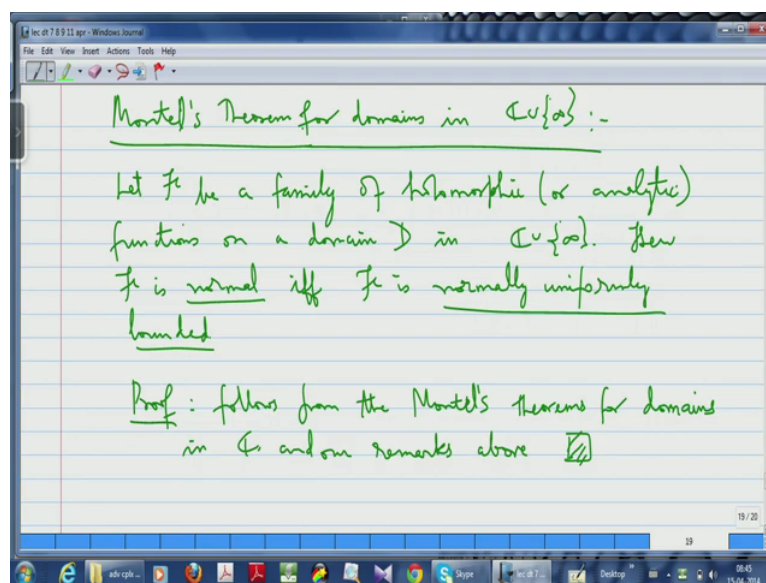 lec dt 7 8 9 11 apr - Windows Journal
File Edit View Insert Actions Tools Help
Montel's Theorem for domains in ℂ∪{∞} :-
Let ℱ be a family of holomorphic (or analytic)
functions on a domain D in ℂ∪{∞}. Then
ℱ is normal iff ℱ is normally uniformly
bounded
Proof : follows from the Montel's theorems for domains
in ℂ, and our remarks above
19 / 20
19
adv cplx ...
Skype
lec dt 7 ...
Desktop
08:45
15-04-2014